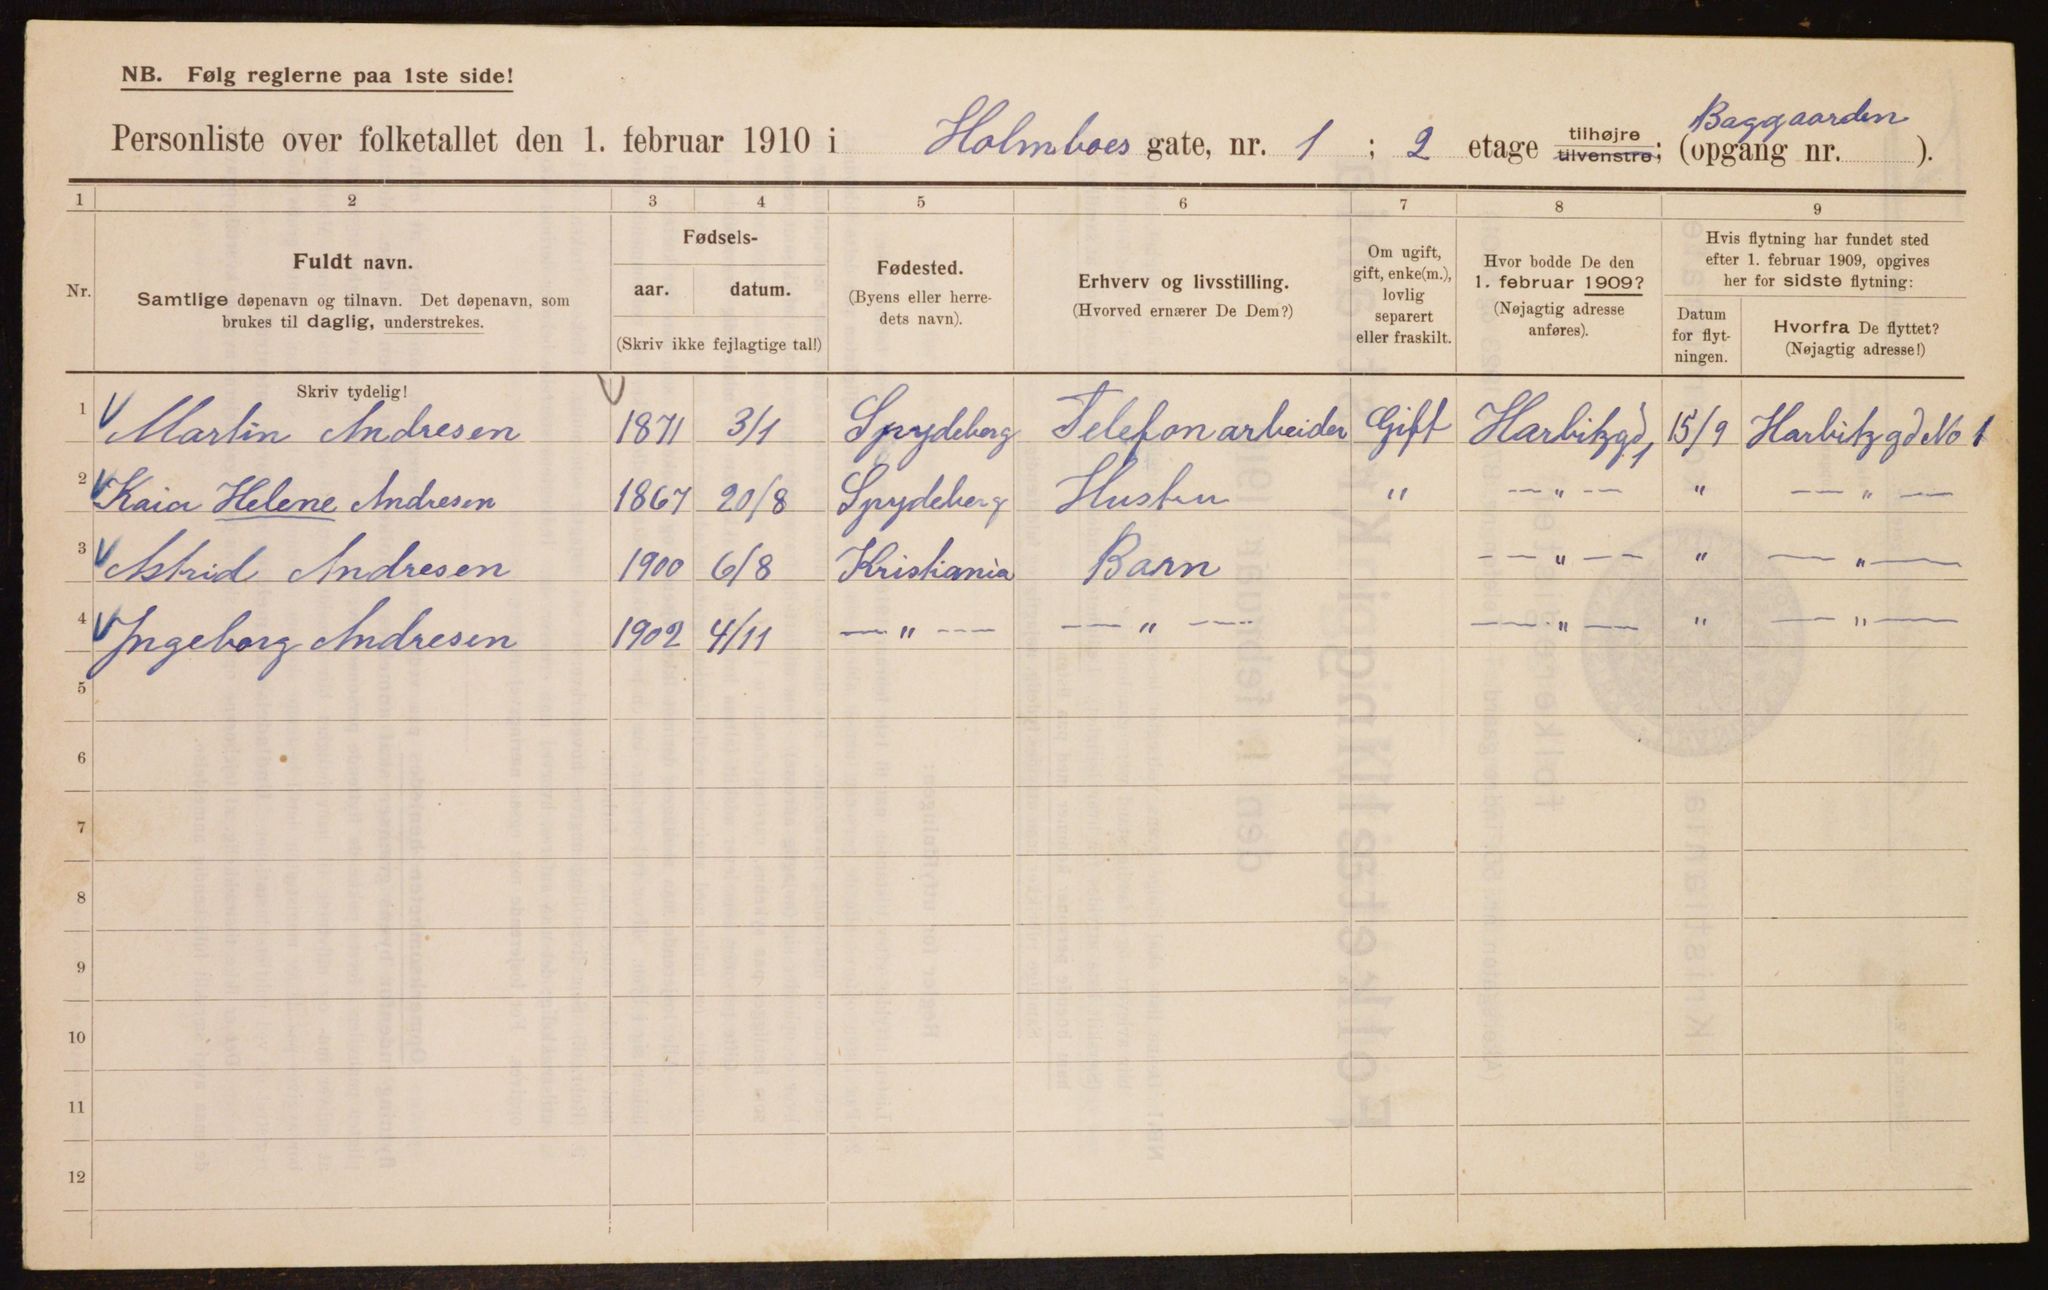 NB. Følg reglerne paa 1ste side!
Baggaarden
Personliste over folketallet den 1. februar 1910 i Holmboes gate, nr. 1 ; 2 etage tilhøjre tilvenstre; (opgang nr. ).
1 2 3 4 5 6 7 8 9
Nr.
Fuldt navn.
Samtlige døpenavn og tilnavn. Det døpenavn, som
brukes til daglig, understrekes.
Skriv tydelig!
Fødsels-
aar. datum.
(Skriv ikke fejlagtige tal!)
Fødested.
(Byens eller herre-
dets navn).
Erhverv og livsstilling.
(Hvorved ernærer De Dem?)
Om ugift,
gift, enke(m.),
lovlig
separert
eller fraskilt.
Hvor bodde De den
1. februar 1909?
(Nøjagtig adresse
anføres).
Hvis flytning har fundet sted
efter 1. februar 1909, opgives
her for sidste flytning:
Datum
for flyt-
ningen.
Hvorfra De flyttet?
(Nøjagtig adresse!)
1 Martin Andresen 1871 3/1 Spydeberg Telefonarbeider Gift Harbitzgd, 1 15/9 Harbitzgd No 1
2 Kaia Helene Andresen 1867 20/8 Spydeberg Hustru " — " — " — " —
3 Astrid Andresen 1900 6/8 Kristiania Barn — " — " — " —
4 Ingeborg Andresen 1902 4/11 — " — — " — — " — " — " —
5
6
7
8
9
10
11
12